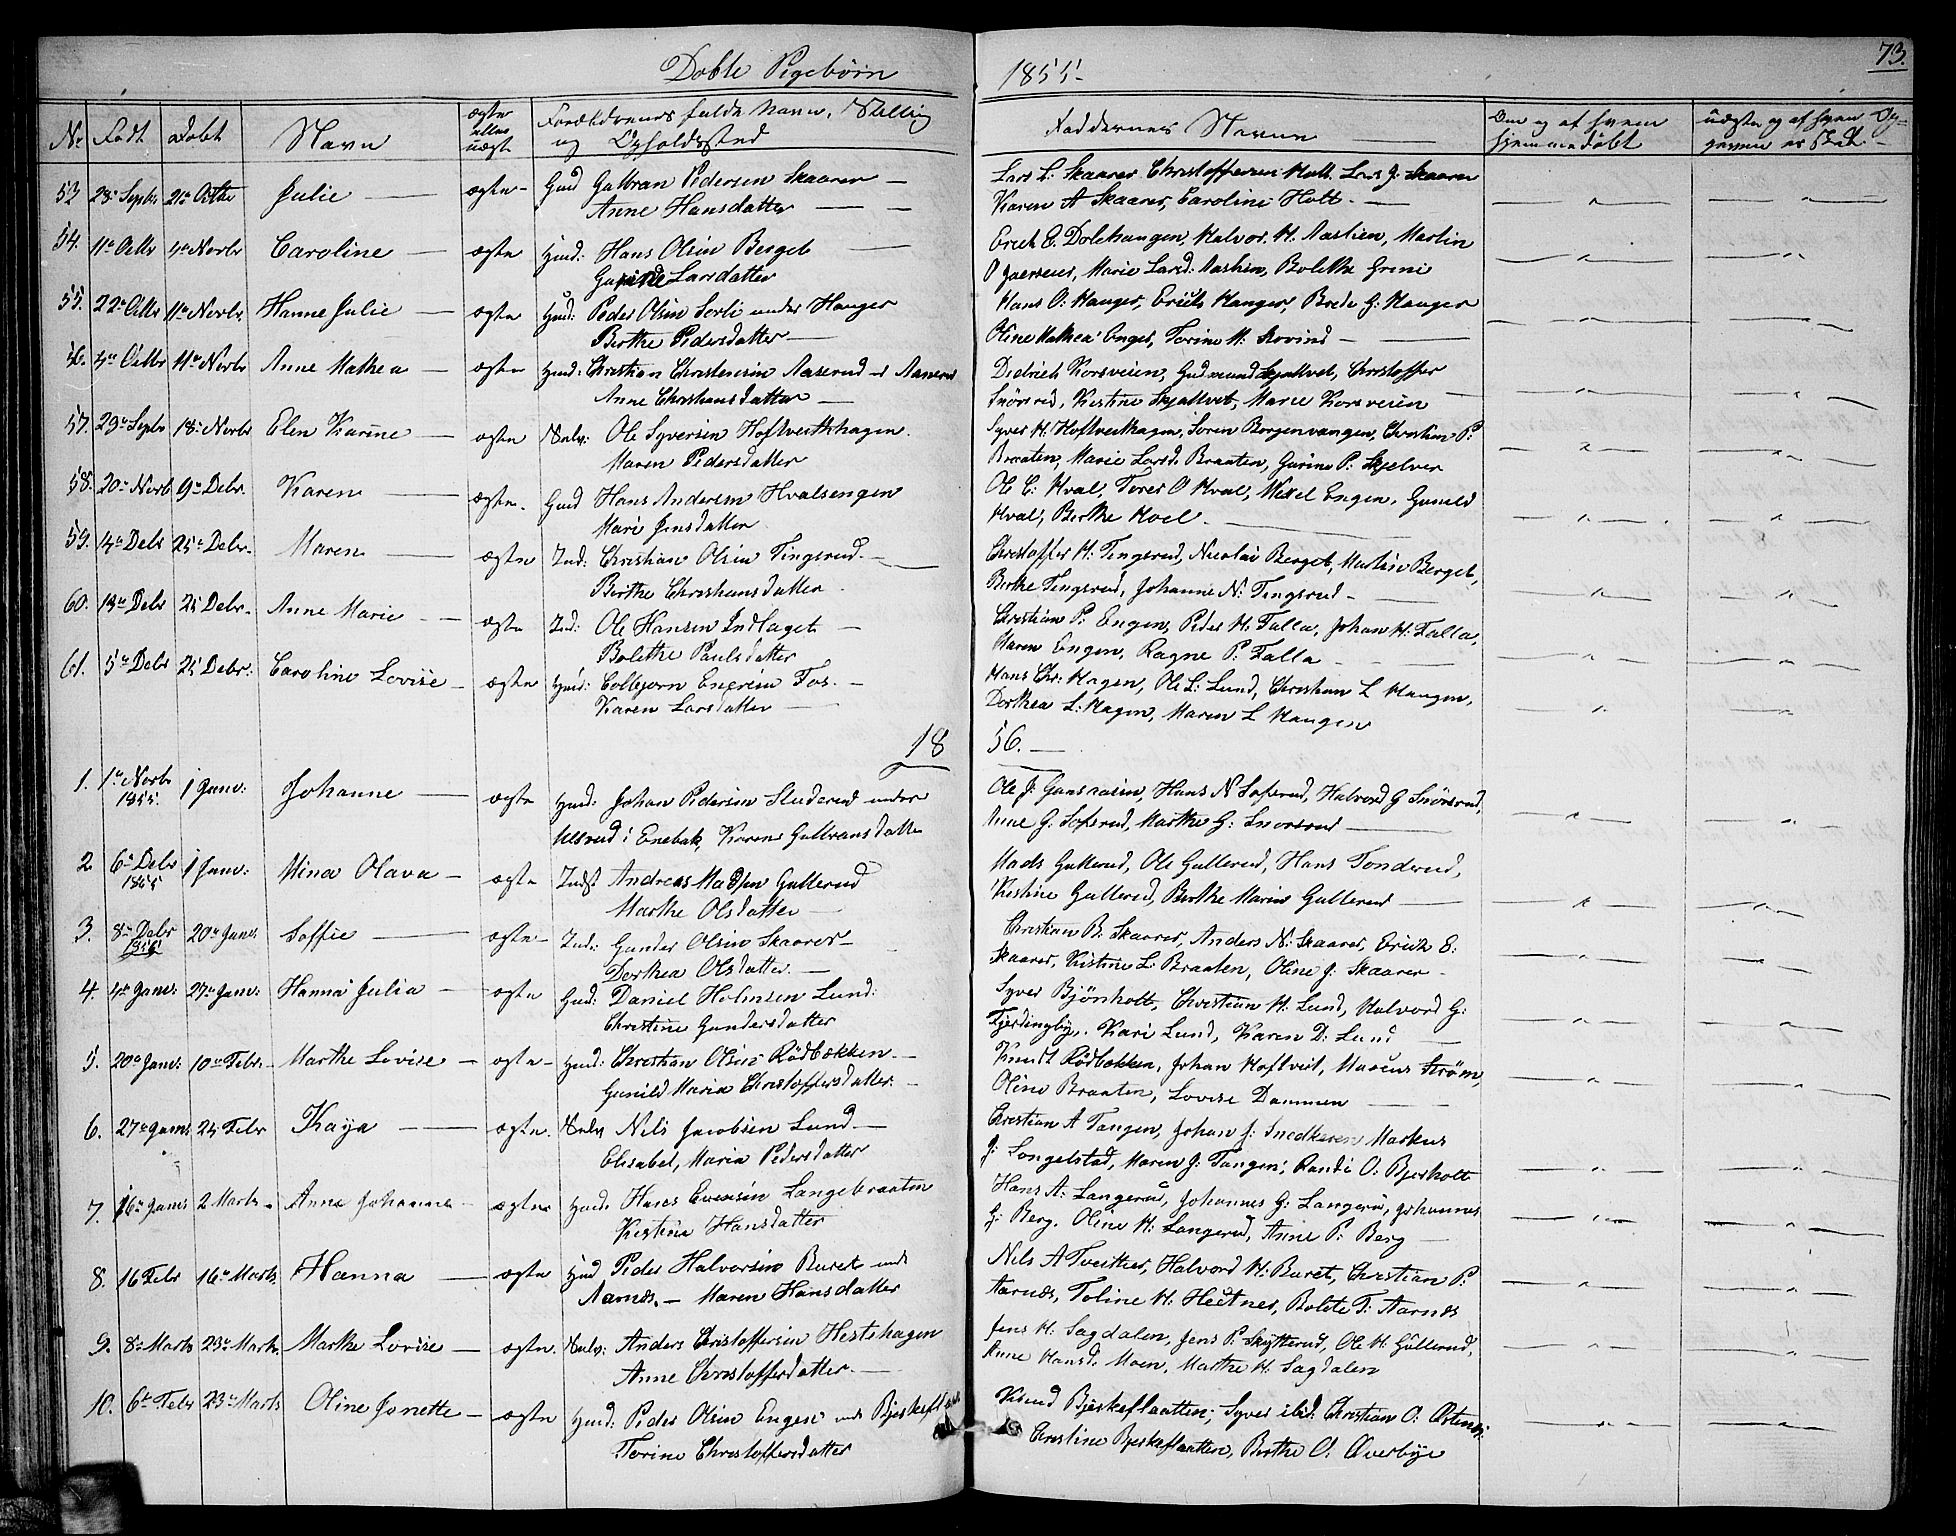 Døbte Pigebørn
1855
73.
No Født Døbt Navn ægte eller uægte Forældrenes fulde Navn, Stilling og Opholdssted
Faddernes Navne
Om og af hvem hjemmedøbt
53 28de Septbr 21de Octbr Julie ægte Gmd Gulbran Pedersen Skaarer
Anne Hansdatter
Lars L: Skaarer Christoffersen Holt Lars J. Skaarer
Karen A Skaarer, Caroline Holt
54. 11te Octbr 4de Novbr Caroline ægte Hmd: Hans Olsen Berget
Larsdatter
Erich E. Dolehaugen, Halvor H. Aaslien, Martin
Marie Larsd: Aaslien, Bolethe Greni
55. 22de Octbr 11te Novbr. Hanne Julie ægte Hmd: Peder Olsen Sorli under Hauger
Berthe Pedersdatter
Hans O: Hauger, Erich Hauger, Brede G: Hauger
Oline Mathea Enget, Torine M: Rovind
56. 4de Octbr 11te Novbr Anne Mathea ægte Hmd: Christian Christensen Aaserud
Anne Christiansdatter
Didrich Korsveien, Gudmund Skjatvet, Christoffer
Snorsrud, Kistine Skjatvet, Marie Korsveien
57. 29de Septbr 18de Novbr Elen Karine ægte Selv: Ole Syversen Hoftveithhagen
Maren Pedersdatter
Syver H: Hoftveithagen, Soren Borgenvangen, Christian P:
Braaten, Marie Larsd. Braaten, Gurine P: Skjelver
58. 20de Novb 9de Debr. Karen ægte Gmd Hans Andersen Hvalsengen
Mari Jensdatter
Ole C: Hval, Torer O Hval, Wexel Engen, Gunild
Hval, Berthe Hoel
59. 14de Debr 25de Debr. Maren ægte Ind: Christian Olsen Tingsrud
Berthe Christiansdatter
Christoffer H: Tingsrud, Nicolai Berget, Mathise Berget,
Berthe Tingsrud, Johanne N: Tingsrud
60. 13de Debr 25 Debr. Anne Marie ægte Ind: Ole Hansen Indlaget
Bolethe Paulsdatter
Christian P: Engen, Peder H: Falla, Johan H: Falla,
Maren Engen, Ragne P: Falla
61. 5te Debr 25 Debr: Caroline Lovise ægte Hmd: Colbjørn Engeren Fos.
Karen Larsdatter
Hans Chr: Hagen, Ole L: Lund, Christian L Haugen,
Dorthea L: Hagen, Maren L Haugen
18 56.
1. 1te Novbr 1855. 1 Janv: Johanne ægte Hmd: Johan Pedersen Sluderud under
Ulsrud i Enebak, Karen Gulbransdatter
Ole J: Gaasnasen, Hans N Soferud, Halvord G Snorsrud,
Anne G: Soferud, Marthe G: Snorsrud
2. 6te Debr 1855 1 Janv: Mina Olava ægte Indst Andreas Madsen Gullerud
Marthe Olsdatter
Mads Gullerud, Ole Gullerud, Hans Tonderud,
Kistine Gullerud, Berthe Marie Gullerud
3. 8de Debr 20de Janv: Soffie ægte Ind: Gunder Olsen Skaarer
Dorthea Olsdatter
Christian B: Skaarer, Anders N: Skaarer, Erich E:
Skaarer, Kistine L: Braaten, Oline J: Skaarer
4. 4de Janv: 27de Janv: Hanna Julia ægte Gmd: Daniel Holmsen Lund:
Christine Gundersdatter
Syver Bjönholt, Christian H: Lund, Halvord G:
Fjerdingby, Kari Lund, Karen D: Lund
5. 20de Janv: 10de Febr. Marthe Lovise ægte Hmd: Christian Olsen Rödbækken
Gunild Maria Christoffersdatter
Knudt Rödbækken, Johan Hoftveit, Marcus Strøm,
Oline Braaten, Lovise Dammen
6. 27de Janv 24 Febr Kaja ægte Selv Nils Jacobsen Lund
Elisabet, Maria Pedersdatter
Christian A Tangen, Johan J: Snedkeren Markus
J: Longelstad, Maren J: Tangen, Randi O: Bjerholt
7. 16de Janv 2 Marts Anne Johanne ægte Hmd. Hans Evensen Langebraaten
Kistine Hansdatter
Hans A: Langerud, Johannes G: Langerud, Johannes
G: Berg, Oline H: Langerud, Anne P: Berg
8. 16 Febr 16de Marts Hanna ægte Hmd Peder Halvorsen Buret und
Aarnæs, Maren Hansdatter
Nils A Tveitter, Halvord H: Buret, Christian P:
Aarnæs, Toline H: Hectner, Bolete T: Aarnæs
9. 8de Marts 23de Marts. Marthe Lovise ægte Selv: Anders Christoffersen Hestehagen
Anne Christoffersdatter
Jens H: Sagdalen, Jens P: Skytterud, Ole H Gullerud,
Anne Hansd. Moen, Marthe H. Sagdalen
10. 6te Febr 23de Marts Oline Jonette ægte Hmd: Peder Olsen Engen und
Torine Christoffersdatter
Knud Bjerkeflaatten, Syver ibid: Christian O:
Christine Bjerkeflaatten, Berthe O: Øverbye